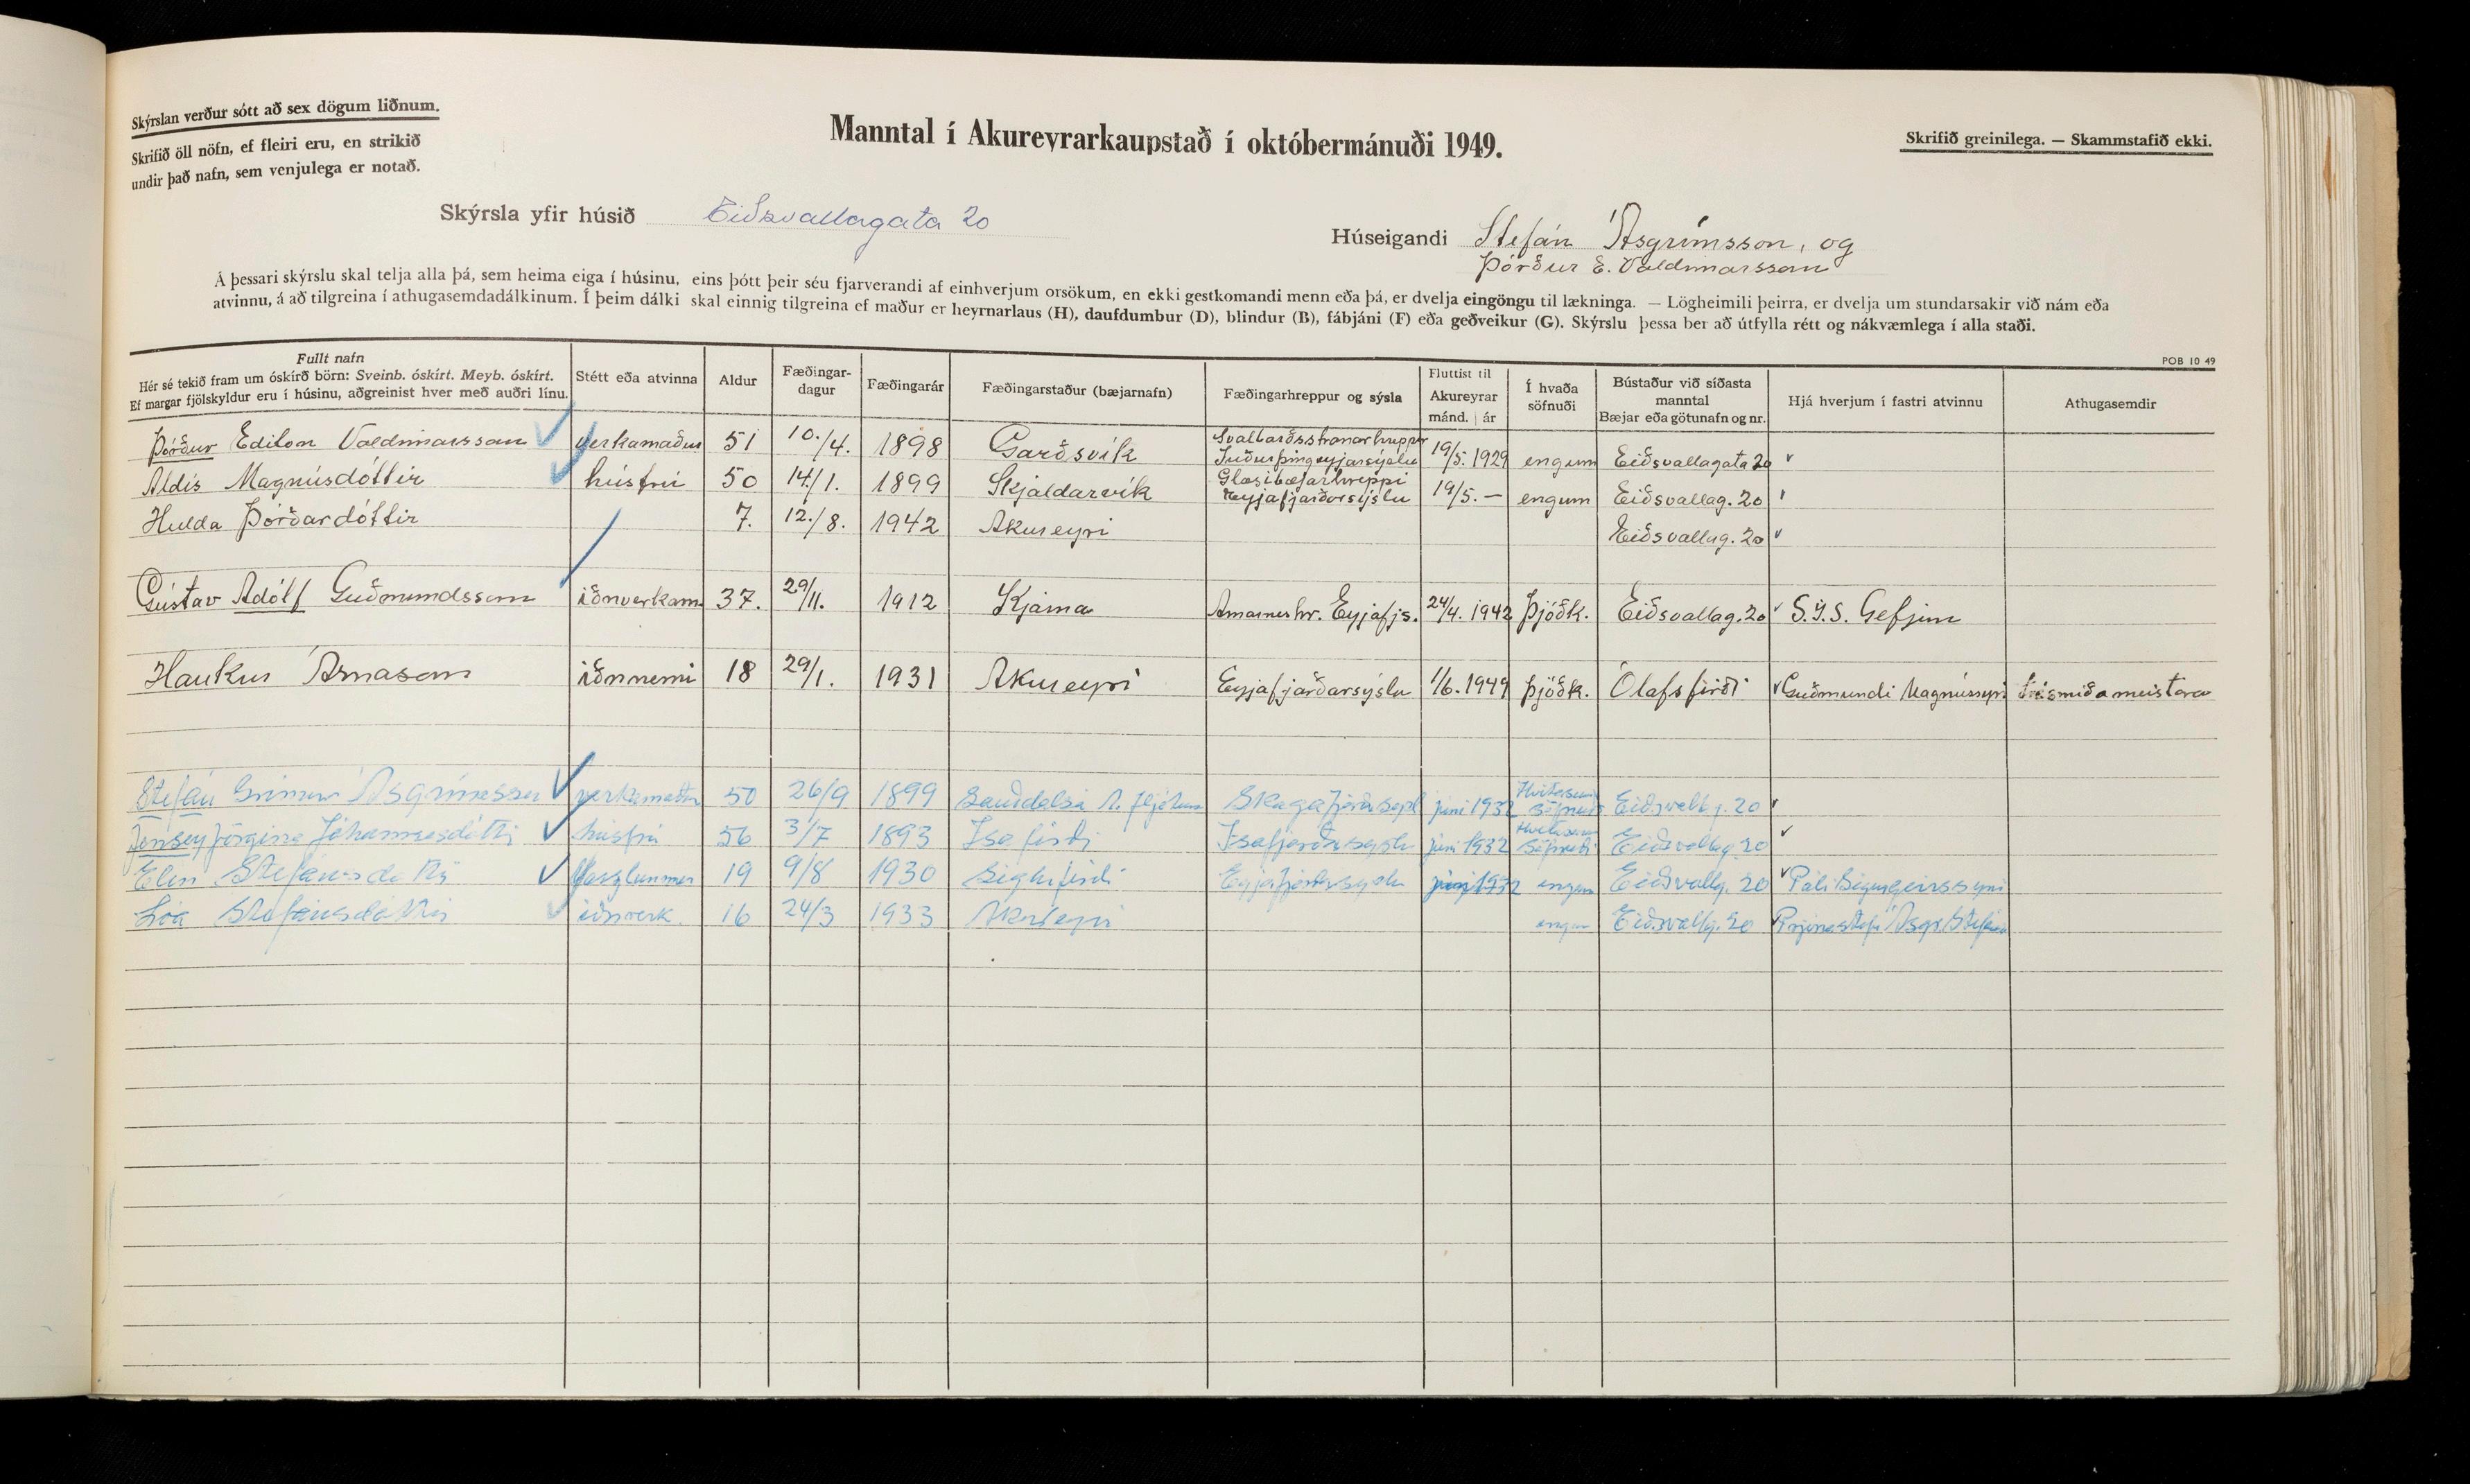 Skýrslan verður sótt að sex dögum liðnum.
Skrifið öll nöfn, ef fleiri eru, en strikið
undir það nafn, sem venjulega er notað.
Manntal í Akureyrarkaupstað í októbermánuði 1949.
Skrifið greinilega. — Skammstafið ekki.
Skýrsla yfir húsið Eiðsvallagata 20
Húseigandi Stefán Ásgrímsson, og
Þórður E. Valdimarsson
Á þessari skýrslu skal telja alla þá, sem heima eiga í húsinu, eins þótt þeir séu fjarverandi af einhverjum orsökum, en ekki gestkomandi menn eða þá, er dvelja eingöngu til lækninga. — Lögheimili þeirra, er dvelja um stundarsakir við nám eða
atvinnu, á að tilgreina í athugasemdadálkinum. Í þeim dálki skal einnig tilgreina ef maður er heyrnarlaus (H), daufdumbur (D), blindur (B), fábjáni (F) eða geðveikur (G). Skýrslu þessa ber að útfylla rétt og nákvæmlega í alla staði.
POB 10 49
Fullt nafn
Hér sé tekið fram um óskírð börn: Sveinb. óskírt. Meyb. óskírt.
Ef margar fjölskyldur eru í húsinu, aðgreinist hver með auðri línu.
Stétt eða atvinna
Aldur
Fæðingar-
dagur
Fæðingarár
Fæðingarstaður (bæjarnafn)
Fæðingarhreppur og sýsla
Fluttist til
Akureyrar
mánd. | ár
Í hvaða
söfnuði
Bústaður við síðasta
manntal
Bæjar eða götunafn og nr.
Hjá hverjum í fastri atvinnu
Athugasemdir
Þórður Edilon Valdimarsson verkamaður 51 10./4. 1898 Garðsvík Svalbarðsstranarhreppr Suðurþingeyjarsýslu 19/5. 1929 engum Eiðsvallagata 20
Aldís Magnúsdóttir húsfrú 50 14/1. 1899 Skjaldarvík Glæsibæjarhreppi Eyjafjarðarsýslu 19/5. — engum Eiðsvallag. 20
Hulda Þórðardóttir 7. 12./8. 1942 Akureyri Eiðsvallag. 20
Gústav Adólf Guðmundsson iðnverkam. 37. 29/11. 1912 Kjarna Arnarneshr. Eyjafjs. 24/4. 1942 Þjóðk. Eiðsvallag. 20 S.Í.S. Gefjun
Haukur Árnason iðnnemi 18 29/1. 1931 Akureyri Eyjafjarðarsýslu 1/6. 1949 Þjóðk. Ólafsfirði Guðmundi Magnússyni Trésmíðameistara
Stefán Grímur Ásgrímsson verkamaður 50 26/9 1899 Skagafjarðarsýsl júní 1932 Hvítasunnu söfnuði Eiðsvallag. 20
Jensey Jörgína Jóhannesdóttir húsfrú 56 3/7 1893 Ísafirði Ísafjarðarsýslu júní 1932 Hvítasunnu söfnuði Eiðsvallag. 20
Elín Stefánsdóttir 19 9/8 1930 Siglufirði Eyjafjarðarsýslu júní 1932 engum Eiðsvallg. 20 Páli Sigurgeirssyni
Lóa Stefánsdóttir iðnverk. 16 24/3 1933 Akureyri engum Eiðsvallg. 20 Prjónastofu Ásgr. Stefáns